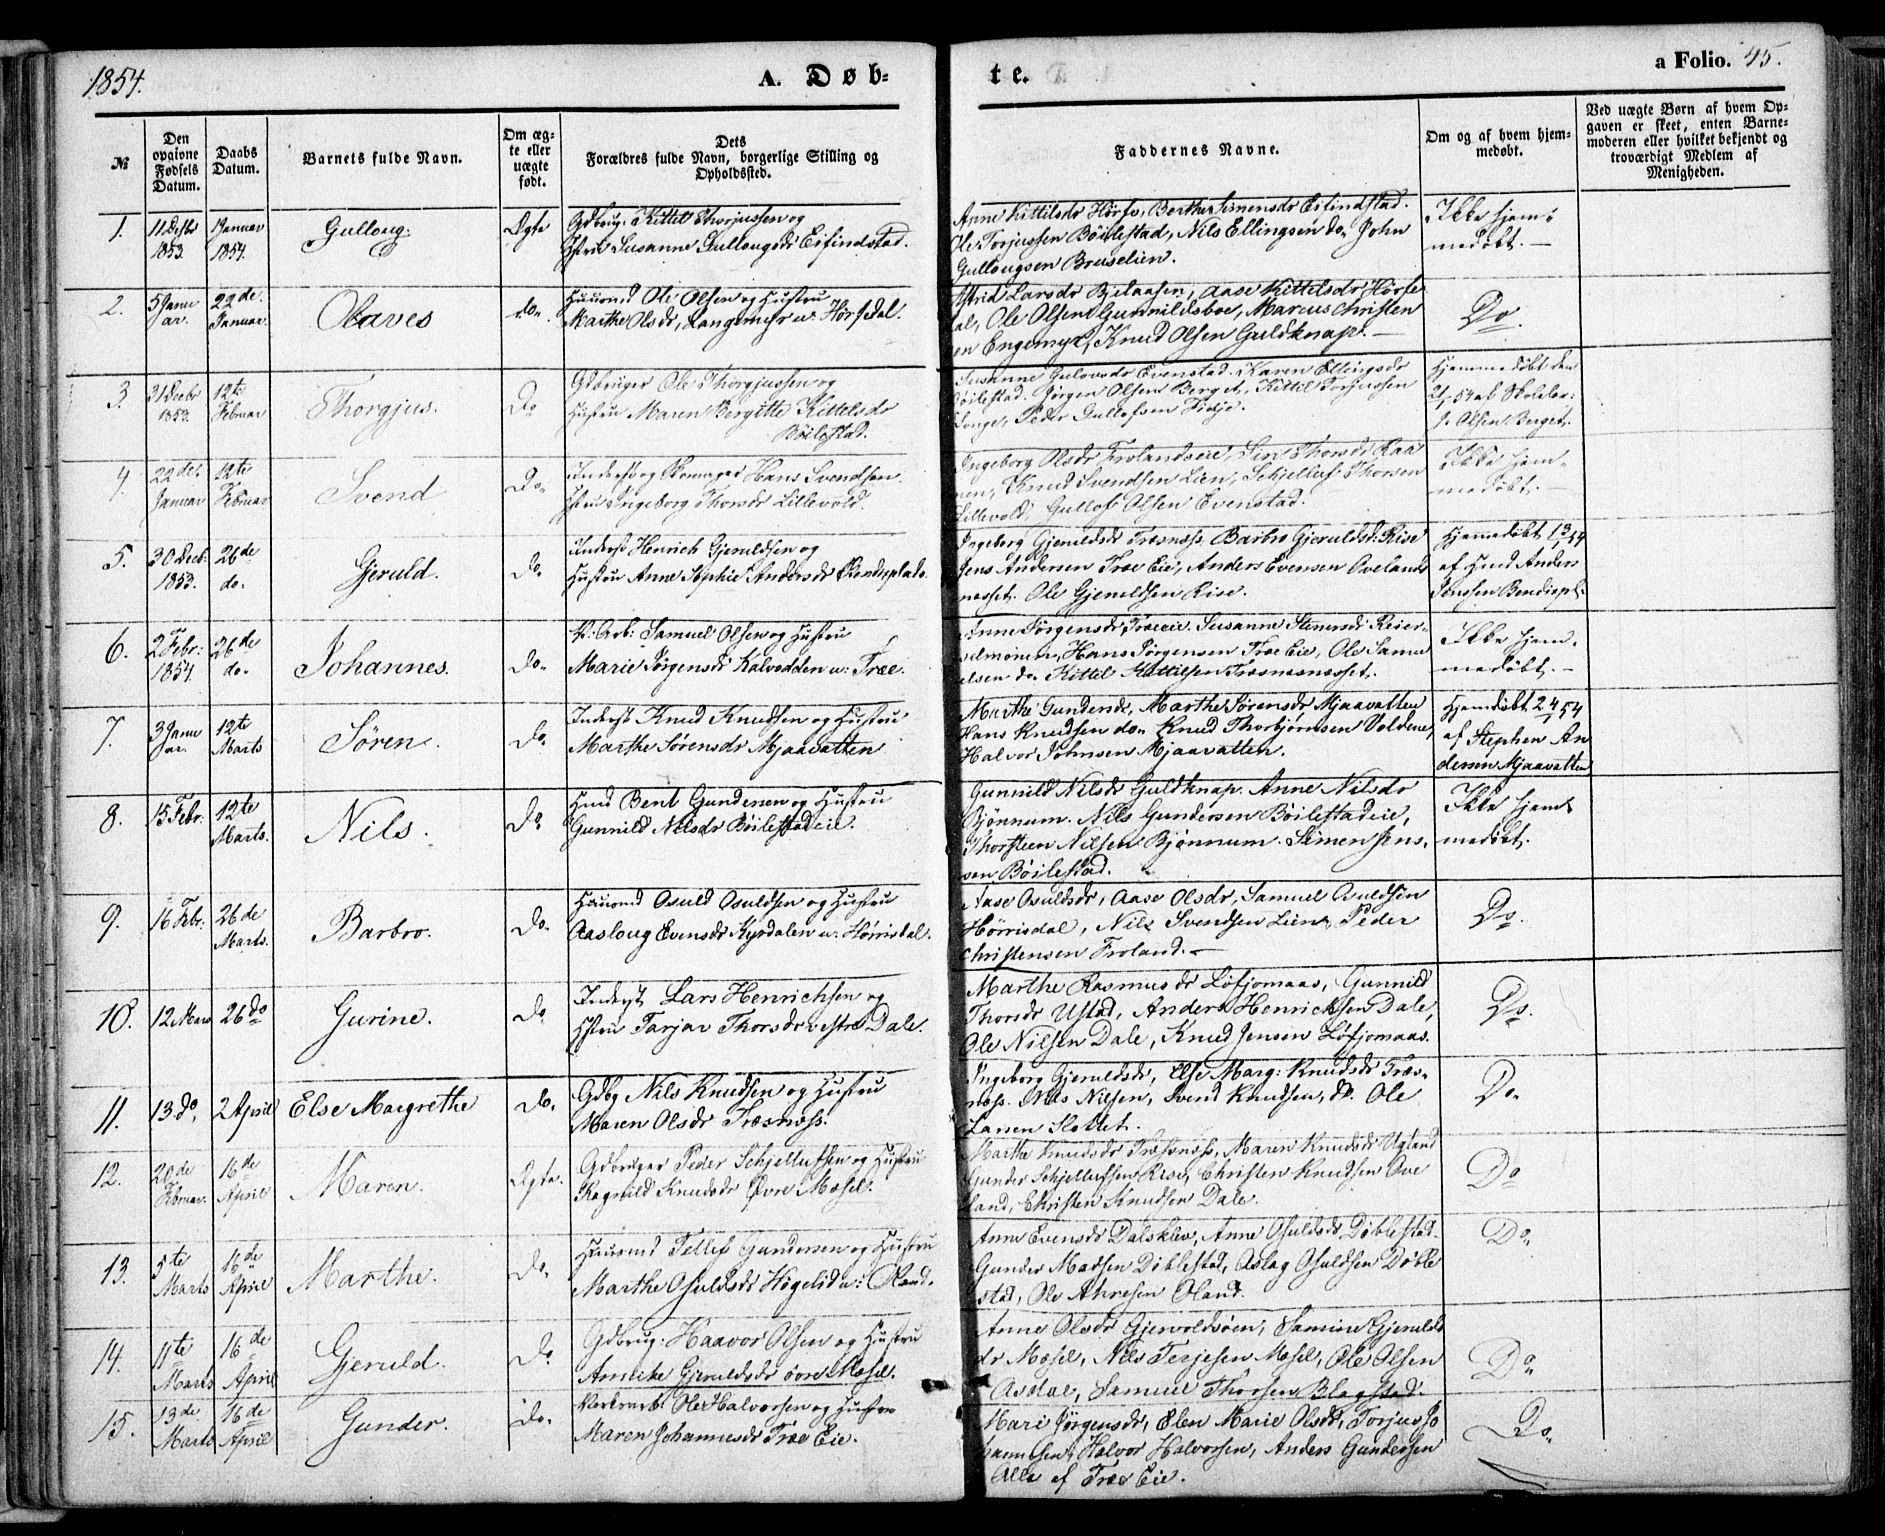 1854.
A. Døb-
te.
a Folio. 45.
№
Den opgivne Fødsels Datum.
Daabs Datum.
Barnets fulde Navn.
Om ægte eller uægte født.
Dets
Forældres fulde Navn, borgerlige Stilling og
Opholdssted.
Faddernes Navne.
Om og af hvem hjem-
medøbt.
Ved uægte Børn af hvem Op-
gaven er skeet, enten Barne-
moderen eller hvilket bekjendt og
troværdigt Medlem af
Menigheden.
1. 11 Decbr 1853. 1 Januar 1854. Gulloug. Ægte
Gdbrug. Kittel Thorjussen og
Hstru Susanne Gullougsdr Eifindstad.
Anne Kittilsdr Hörfs, Berthe Simensdr Eifindstad.
Ole Torjussen Böilestad, Nils Ellingsen do John
Gullougsen Bruselien.
Ikke hjem-
medöbt. —
2. 5 Januar. 22de Januar. Olaves do.
Huusmd Ole Olsen og Hustru
Marthe Olsdr, Langemyr u. Hörfsdal.
Astrid Larsdr Bjelaasen, Aase Kittelsdr Hörfs
dal, Ole Olsen Gunnildsboe, Marcus Christen
sen Engemyr, Knud Olsen Guldknap. —
Do.
3. 31 Decbr 1853. 12te Februar Thorgjus. Do
Gdbruger Ole Thorgjussen og
Hustru Maren Bergitte Kittelsdr
Böilestad.
Susanne Gulovsdr Evenstad. Karen Ellingsdr
Böilestad. Jörgen Olsen Berget, Kittil Torjussen
Songe, Peder Gullofsen
Hjemmedöbt den
2/1 54 af Skolelær:
J. Olsen Berget.
4. 22de Januar 12te Februar Svend Do.
Inderst og Skomager Hans Svendsen
Hstru Ingeborg Thorsdr Lillevold.
Ingeborg Olsdr Frolandseie, Siri Thorsdr Raa
nen, Knud Svendsen Lien, Schjelluf Thorsen
Lillevold, Gullof Olsen Evenstad.
Ikke hjem-
medöbt. —
5. 30 Decb: 1853. 26de do. Gjeruld. Do.
Inderst Henrich Gjeruldsen og
Hustru Anne Sophie Andersdr Bendixplads.
Ingeborg Gjeruldsdr Træsnæss. Barbro Gjeruldsd: Rise
Jens Andersen Træ Eie, Anders Evensen Ovelands
næsset. Ole Gjeruldsen Rise.
Hjemedöbt 13/1 54
af Hmd Anders
Jenssen Bendixpl.
6. 2 Febr: 1854. 26de do. Johannes. do.
V: Arb: Samuel Olsen og Hustru
Marie Jörgensdr Kalvedden u: Træe.
Anne Jörgensdr Træeie. Susanne Stenersdr Reier-
selmoen, Hans Jörgensen Træ Eie, Ole Samu
elsen do. Kittil Kittilsen Træsnæsnæsset.
Ikke hjem-
medöbt. —
7. 3 Januar. 12te Marts Sören. Do
Inderst Knud Knudsen og Hustru
Marthe Sörensdr Mjaavatten
Marthe Gundersdr, Marthe Sörensdr Mjaavatten
Hans Knudsen do. Knud Thorbjörnsen Voldene,
Halvor Johnsen Mjaavatten.
Hjemdöbt 24/1 54
af Stephen An
dersen Mjaavatten
8. 15 Febr: 12te Marts. Nils. Do
Hmd Bent Gundersen og Hustru
Gunnild Nilsdr Böilestadeie.
Gunnild Nilsdr Guldknap. Anne Nilsdr
Bjönnum. Nils Gundersen Böilestadeie,
Thorsteen Nilsen Bjönnum. Simen Jens-
sen, Böilestad.
Ikke hjem
medöbt.
9. 16 Febr: 26de Marts. Barbro. Do.
Huusmd Osuld Osuldsen og Hustru
Aasloug Evensdr Kyrdalen u. Hörrisdal.
Aase Osuldsdr, Aase Olsdr, Samuel Osuldsen
Hörrisdal, Nils Svendsen Lien, Peder
Christensen Froland. —
Do.
10. 12 Mars 26 Do Gurine. Do
Inderst Lars Henrichsen og
Hstru Tarjer Thorsdr vestre Dale.
Marthe Rasmusdr Löfjomaas, Gunnild
Thorsdr Ustad, Anders Henrichsen Dale,
Ole Nilsen Dale, Knud Jensen Löfjomaas.
Do.
11. 13 do. 2 April Else Margrethe Do.
Gdbg Nils Knudsen og Hustru
Maren Olsdr Træsnæss.
Ingeborg Gjeruldsdr, Else Marg: Knudsdr Træs-
næss. Nils Nilsen, Svend Knudsen, do. Ole
Larsen Slottet.
Do.
12. 20de Februar. 16de April Maren. Ægte.
Gdbruger Peder Schjellufsen og Hustru
Ragnild Knudsdr Övre Mosel.
Marthe Knudsdr Træsnæss, Maren Knudsdr Ugland
Gunder Schjellufsen Rise, Christen Knudsen Ove
land, Christen Knudsen Dale.
Do
13. 5te Marts 16de April Marthe. Do.
Huusmd Tellef Gundersen og Hustru
Marthe Osuldsdr Högelid u:
Anne Evensdr Dalsklev, Anne Osuldsdr Döblestad.
Gunder Madsen Döblestad, Aslag Osuldsen Döble
stad, Ole Ahresen Öland.
Do.
14. 11te Marts 16de April Gjeruld. Do
Gdbrug. Haavor Olsen og Hustru
Anneke Gjeruldsdr övre Mosel.
Anne Olsdr Gjervoldsöen, Samine Gjerulds
dr Mosel, Nils Terjesen Mosel, Ole Olsen
Asdal, Samuel Thorsen Blagstad.
Do.
15. 13de Marts 16de April Gunder. Do.
Værksarb. Ole Halvorsen og Hustru
Maren Johannesdr Træ Eie.
Mari Jörgensdr, Elen Marie Olsdr, Torjus Jo
hannesen, Halvor Halvorsen, Anders Gundersen
Alle af Træ Eie.
Do.